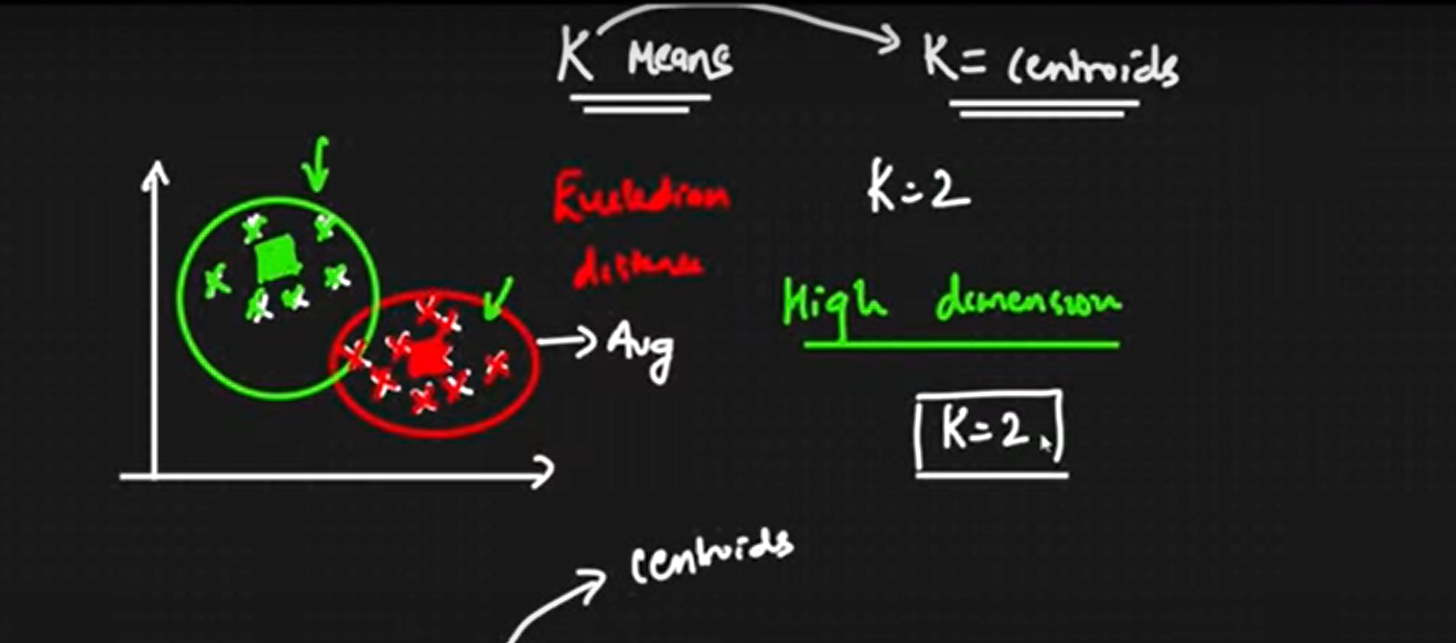 K Means
K= Centroids
Eucledian
distance
K=2
High dimension
Avg
K=2
centroids